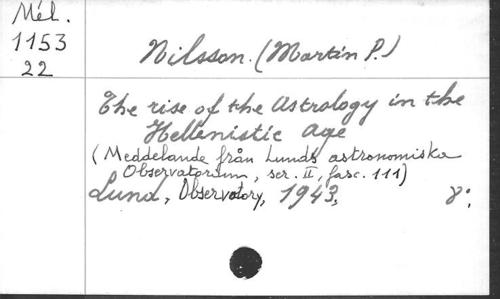 Mél.
1153
22
Nilsson. (Martin P.)
The rise of the Astrology in the
Hellenistic Age
(Meddelande från Lunds astronomiska
Observatorium, ser. II, fasc. 111)
Lund, Observatory, 1943,
8°.